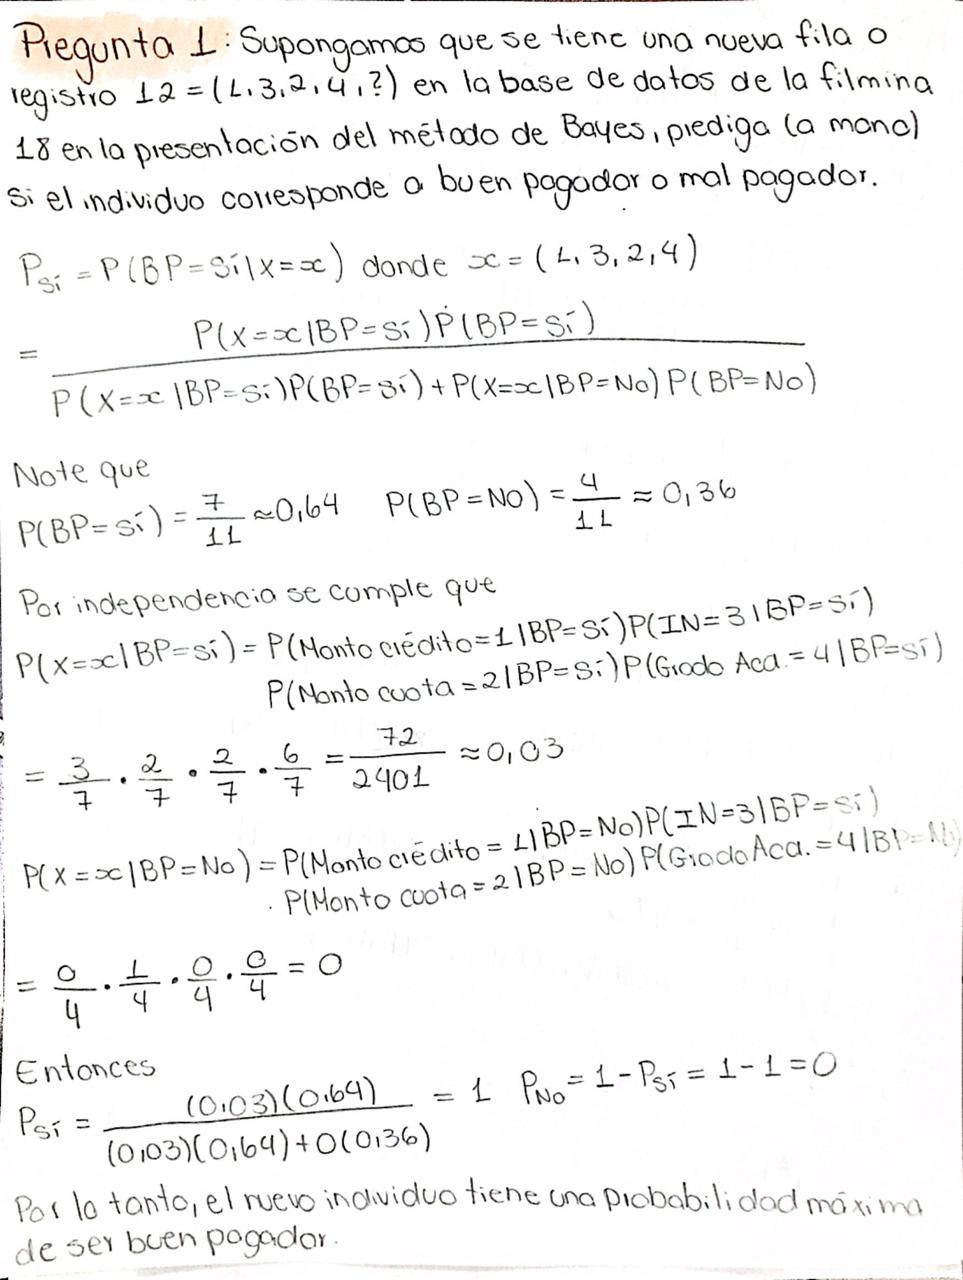 Pregunta 1: Supongamos que se tiene una nueva fila o
registro 12 = (1,3,2,4,?) en la base de datos de la filmina
18 en la presentación del método de Bayes, prediga (a mano)
si el individuo corresponde a buen pagador o mal pagador.
P_Sí = P(BP=Sí|X=x) donde x = (1,3,2,4)
= P(X=x|BP=Sí)P(BP=Sí) / P(X=x|BP=Sí)P(BP=Sí) + P(X=x|BP=No)P(BP=No)
Note que
P(BP=Sí) = 7/11 ≈ 0,64 P(BP=NO) = 4/11 ≈ 0,36
Por independencia se cumple que
P(X=x|BP=Sí) = P(Monto crédito=1|BP=Sí)P(IN=3|BP=Sí)
P(Monto cuota=2|BP=Sí)P(Grado Aca.=4|BP=Sí)
= 3/7 · 2/7 · 2/7 · 6/7 = 72/2401 ≈ 0,03
P(X=x|BP=No) = P(Monto crédito=1|BP=No)P(IN=3|BP=Sí)
· P(Monto cuota=2|BP=No)P(Grado Aca.=4|BP=No)
= 0/4 · 1/4 · 0/4 · 0/4 = 0
Entonces
P_Sí = (0,03)(0,64) / (0,03)(0,64)+0(0,36) = 1 P_No = 1-P_Sí = 1-1=0
Por lo tanto, el nuevo individuo tiene una probabilidad máxima
de ser buen pagador.